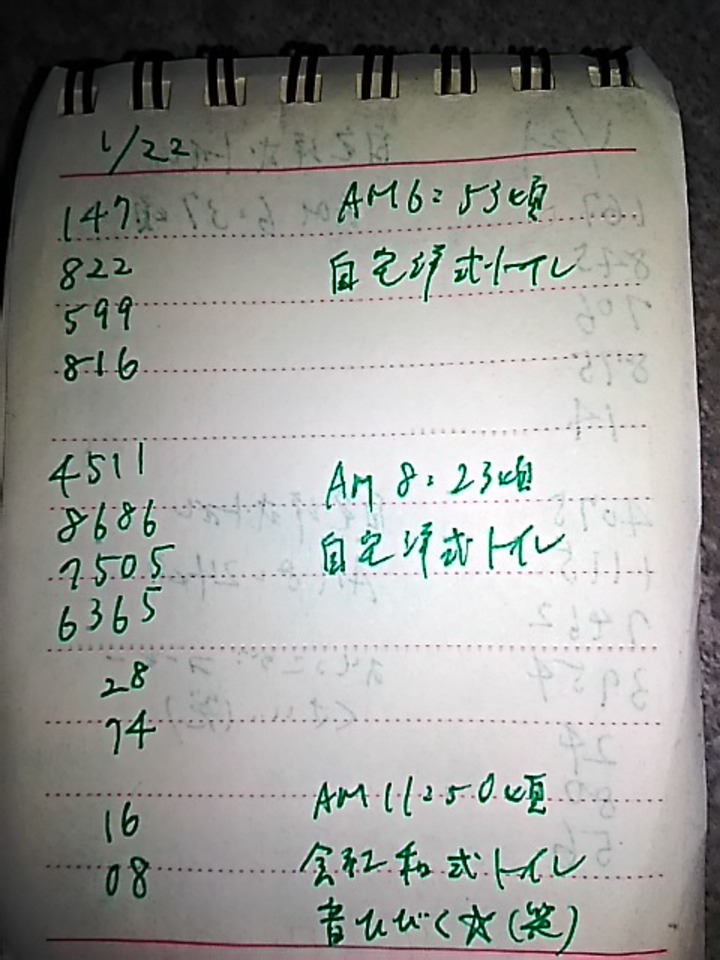 1/22
147 AM6:53頃
822 自宅洋式トイレ
599
816
4511 AM 8:23頃
8686
7505 自宅洋式トイレ
6365
28
74
16 AM11:50頃
08 会社和式トイレ
音ひびく☆(笑)